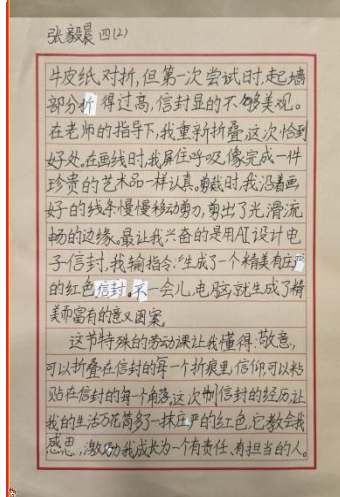 张毅晨 四(2)
牛皮纸对折,但第一次尝试时,起墙
部分折得过高,信封显的不够美观。
在老师的指导下,我重新折叠,这次恰到
好处。在画线时,我屏住呼吸,像完成一件
珍贵的艺术品一样认真。剪裁时,我沿着画
好的线条慢慢移动剪刀,剪出了光滑流
畅的边缘。最让我兴奋的是用AI设计电
子信封,我输指令:“生成了一个精美有庄严
的红色信封。不一会儿,电脑,就生成了精
美而富有的意义图案。
这节特殊的劳动课让我懂得:敬意,
可以折叠在信封的每一个折痕里,信仰可以粘
贴在信封的每个角落。这次制信封的经历,让
我的生活万花筒多了一抹庄严的红色,它教会我
感恩,激励我成长为一个有责任、有担当的人。